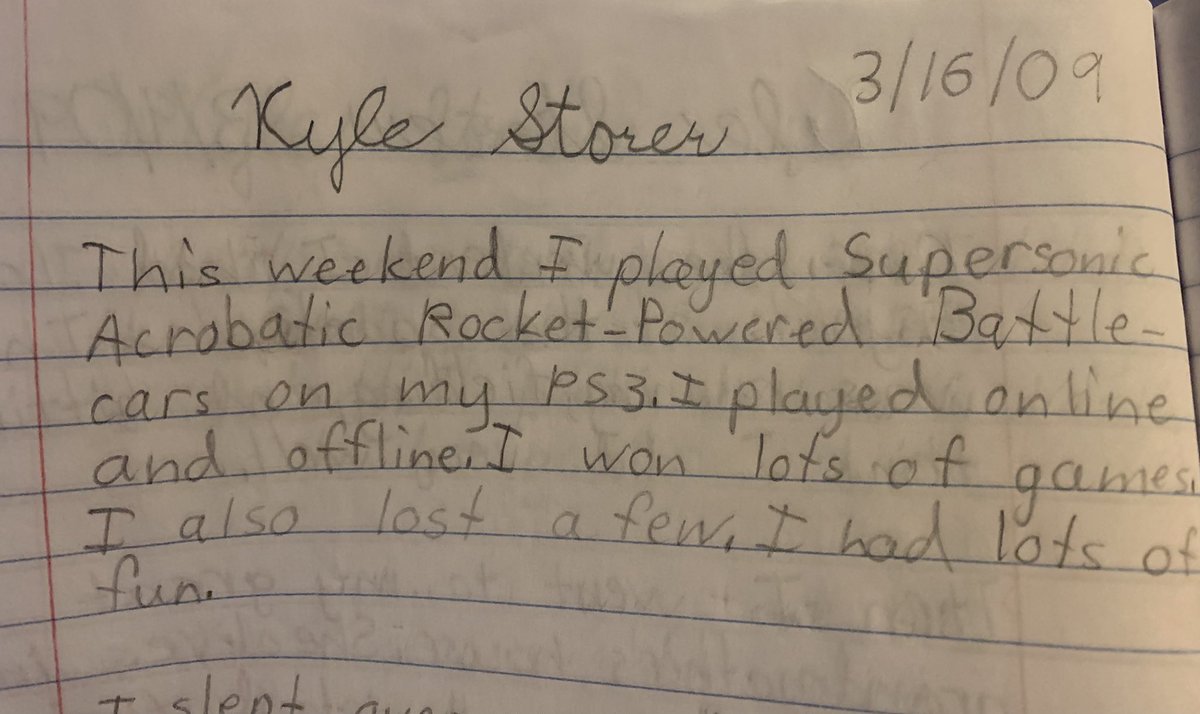 3/16/09
Kyle Storer
This weekend I played Supersonic
Acrobatic Rocket-Powered Battle-
cars on my PS3. I played online
and offline. I won lots of games.
I also lost a few. I had lots of
fun.
I slept over